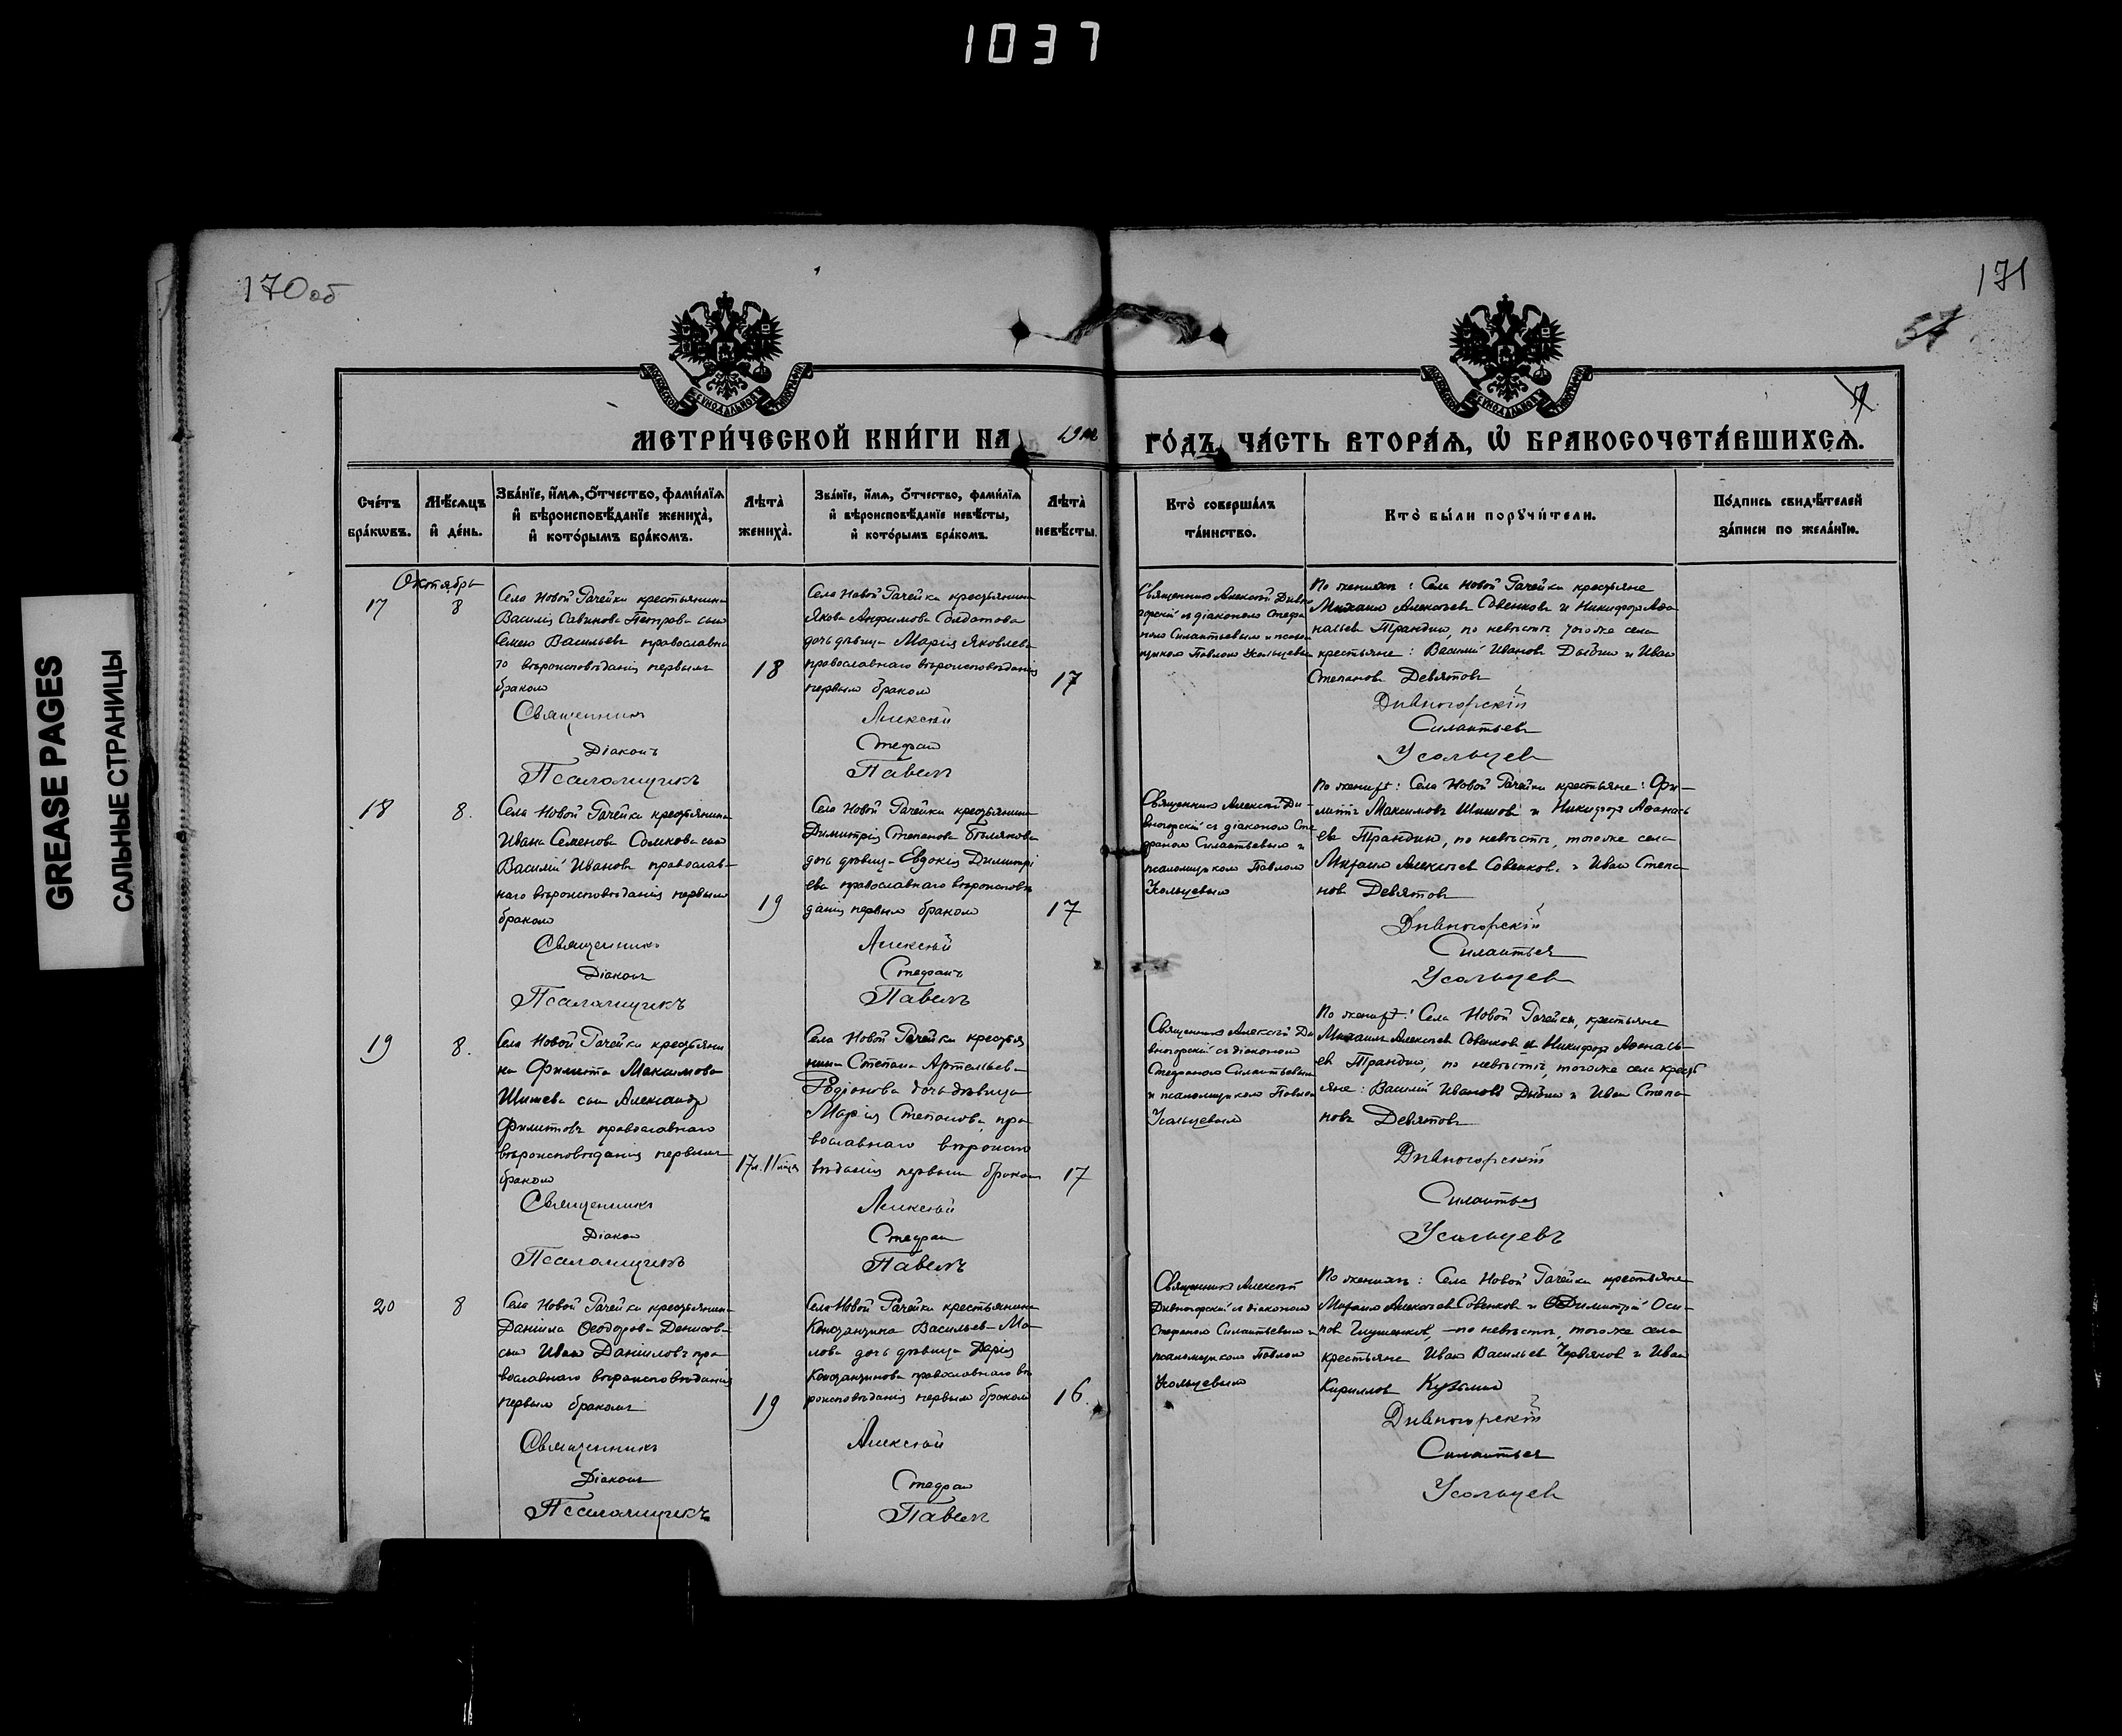 1037
GREASE PAGES
САЛЬНЫЕ СТРАНИЦЫ
170 об
171
57
МЕТРИ́ЧЕСКОЙ КНИ́ГИ НА
ГО́ДЪ, ЧА́СТЬ ВТОРА́Я, Ѡ БРАКОСОЧЕТА́ВШИХСЯ.
Сче́тъ
бра́кѡвъ.
Мѣ́сяцъ
и҆ де́нь.
Зва́нїе, и҆́мя, ѻ҆́тчество, фами́лїя
и҆ вѣроисповѣ́данїе жениха̀,
и҆ кото́рымъ бра́комъ.
Лѣта̀
жениха̀.
Зва́нїе, и҆́мя, ѻ҆́тчество, фами́лїя
и҆ вѣроисповѣ́данїе невѣ́сты,
и҆ кото́рымъ бра́комъ.
Лѣта̀
невѣ́сты.
Кто̀ соверша́лъ
та́инство.
Кто̀ бы́ли порꙋчи́тели.
По́дпись свидѣ́телей
за́писи по жела́нїю.
Октябрь
17
8
Села Новой Рачейки крестьянина
Василія Савинова Петрова сынъ
Семенъ Васильевъ православна
го вѣроисповѣданія первымъ
бракомъ
18
Села Новой Рачейки крестьянина
Якова Анфимова Солдатова
дочь дѣвица Марія Яковлева
православнаго вѣроисповѣданія
первымъ бракомъ
17
Священникъ Алексѣй Дивно
горскій съ діакономъ Стефа
номъ Силантьевымъ и псалом
щикомъ Павломъ Усольцевым
По женихѣ: Села Новой Рачейки крестьяне
Михаилъ Алексѣевъ Совенковъ и Никифоръ Афа
насьевъ Трандинъ, по невѣстѣ того же села
крестьяне: Василій Ивановъ Дыдинъ и Иванъ
Степановъ Девятовъ
Священникъ
Алексѣй
Дивногорскій
Діаконъ
Стефанъ
Силантьевъ
Псаломщикъ
Павелъ
Усольцевъ
18
8.
Села Новой Рачейки крестьянина
Ивана Семенова Сомкова сынъ
Василій Ивановъ православ-
наго вѣроисповѣданія первымъ
бракомъ
19
Села Новой Рачейки крестьянина
Димитрія Степанова Бѣлякова
дочь дѣвица Евдокія Димитрі
ева православнаго вѣроисповѣ
данія первымъ бракомъ
17
Священникъ Алексѣй Ди-
вногорскій съ діакономъ Сте
фаномъ Силантьевымъ и
псаломщикомъ Павломъ
Усольцевымъ
По женихѣ: Села Новой Рачейки крестьяне: Фи-
литъ Максимовъ Шишовъ и Никифоръ Афанась
евъ Трандинъ, по невѣстѣ, того же села
Михаилъ Алексѣевъ Совенковъ и Иванъ Степа
новъ Девятовъ
Священникъ
Алексѣй
Дивногорскій
Діаконъ
Стефанъ
Силантьевъ
Псаломщикъ
Павелъ
Усольцевъ
19
8.
Села Новой Рачейки крестьяни
на Филита Максимова
Шишева сынъ Александръ
Филитовъ православнаго
вѣроисповѣданія первымъ
бракомъ
17 л. 11 мѣся
Села Новой Рачейки крестья
нина Степана Артемьева
Родіонова дочь дѣвица
Марія Степанова, пра
вославнаго вѣроиспо
вѣданія первымъ бракомъ
17
Священникъ Алексѣй Ди
вногорскій съ діакономъ
Стефаномъ Силантьевымъ
и псаломщикомъ Павлом
Усольцевымъ
По женихѣ: Села Новой Рачейки, крестьяне
Михаилъ Алексѣевъ Совенковъ и Никифоръ Афанась-
евъ Трандинъ, по невѣстѣ, того же села кресть
яне: Василій Ивановъ Дыдинъ и Иванъ Степа-
новъ Девятовъ
Священникъ
Алексѣй
Дивногорскій
Діаконъ
Стефанъ
Силантьевъ
Псаломщикъ
Павелъ
Усольцевъ
20
8
Села Новой Рачейки крестьянина
Даніила Ѳеодорова Денисова
сынъ Иванъ Данииловъ пра
вославнаго вѣроисповѣданія
первымъ бракомъ
19
Села Новой Рачейки крестьянина
Константина Васильева Ма-
лова дочь дѣвица Дарія
Константинова православнаго вѣ
роисповѣданія первымъ бракомъ
16.
Священникъ Алексѣй
Дивногорскій съ діакономъ
Стефаномъ Силантьевымъ и
псаломщикомъ Павломъ
Усольцевымъ
По женихѣ: Села Новой Рачейки крестьяне
Михаилъ Алексѣевъ Совенковъ и Димитрій Оси-
повъ Глушенковъ, — по невѣстѣ, того же села
крестьяне Иванъ Васильевъ Червяковъ и Иванъ
Кирилловъ Кузьминъ
Священникъ
Алексѣй
Дивногорскій
Діаконъ
Стефанъ
Силантьевъ
Псаломщикъ
Павелъ
Усольцевъ